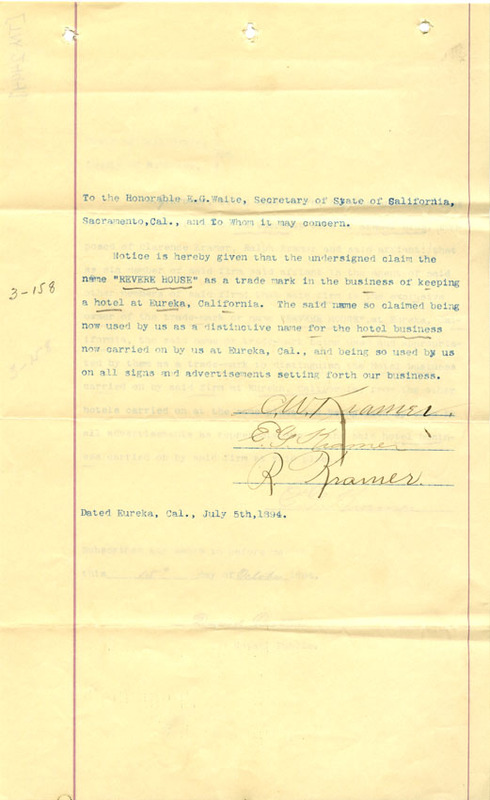 To the Honorable E.G.Waite, Secretary of Syate of Salifornia,
Sacramento,Cal., and To Whom it may concern.
Notice is hereby given that the undersigned claim the
name "REVERE HOUSE" as a trade mark in the business of keeping
3-158
a hotel at Eureka, California. The said name so claimed being
now used by us as a distinctive name for the hotel business
now carried on by us at Eureka, Cal., and being so used by us
on all signs and advertisements setting forth our business.
C.W. Kramer.
E.G. Kramer
R. Kramer.
Dated Eureka, Cal., July 5th,1894.